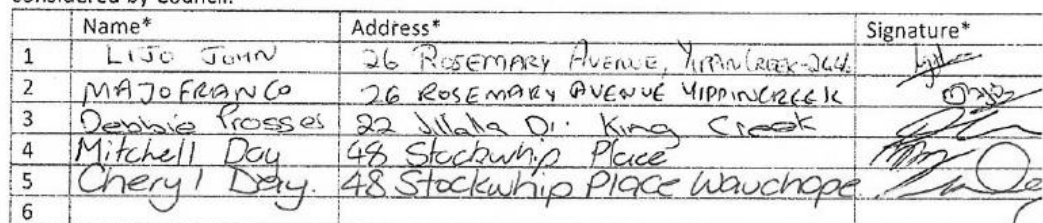 considered by Council.
Name* Address* Signature*
1 LIJO JOHN 26 ROSEMARY AVENUE, YIPPIN CREEK-
2 MAJO FRANCO 26 ROSEMARY AVENUE YIPPINCREEK
3 Debbie Prosses 22 Dr. King Creek
4 Mitchell Day 48 Stockwhip Place
5 Cheryl Day. 48 Stockwhip Place Wauchope
6